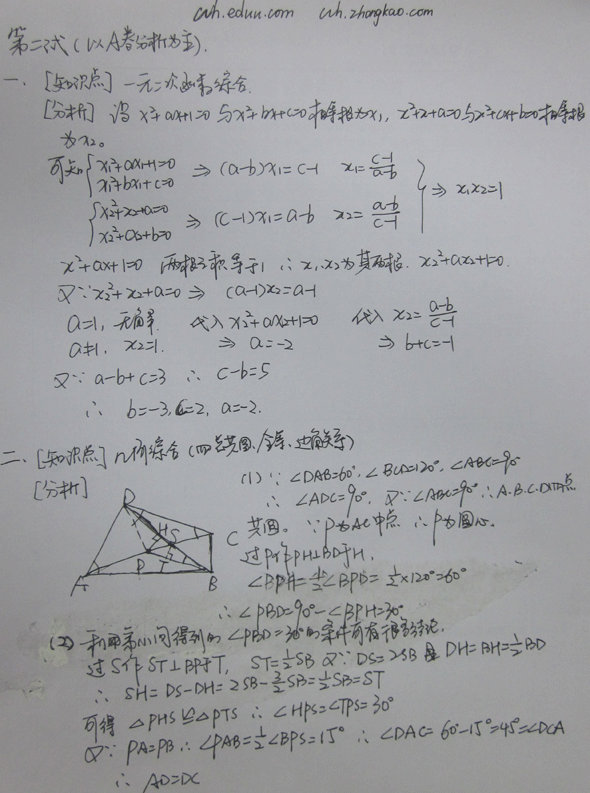 wh.eduu.com wh.zhongkao.com
第二试(以A卷分析为主).
一、[知识点] 一元二次函数综合.
[分析] 设 x²+ax+1=0 与 x²+bx+c=0 相等根为x₁, x²+x+a=0与x²+cx+b=0相等根
为x₂。
可知 { x₁²+ax₁+1=0 x₁²+bx₁+c=0 ⇒ (a-b)x₁=c-1 x₁=(c-1)/(a-b)
{ x₂²+x₂+a=0 x₂²+cx₂+b=0 ⇒ (c-1)x₂=a-b x₂=(a-b)/(c-1) } ⇒ x₁x₂=1
x²+ax+1=0 两根之积等于1 ∴ x₁,x₂为其两根. x₂²+ax₂+1=0.
又∵ x₂²+x₂+a=0 ⇒ (a-1)x₂=a-1
a=1, 无解. 代入 x₂²+ax₂+1=0 代入 x₂=(a-b)/(c-1)
a≠1, x₂=1. ⇒ a=-2 ⇒ b+c=-1
又∵ a-b+c=3 ∴ c-b=5
∴ b=-3, c=2, a=-2.
二、[知识点] 几何综合(四点共圆、全等、边角关系)
[分析]
D
H S
C
P T
A B
(1) ∵ ∠DAB=60°, ∠BCD=120°, ∠ABC=90°
∴ ∠ADC=90°, 又∵∠ABC=90° ∴A.B.C.D四点
共圆。 ∵P为AC中点 ∴P为圆心.
过P作PH⊥BD于H,
∠BPH=½∠BPD=½×120°=60°
∴ ∠PBD=90°-∠BPH=30°
(2) 利用第小问得到的∠PBD=30°的条件可有很多结论.
过S作ST⊥BP于T, ST=½SB 又∵ DS=2SB 且 DH=BH=½BD
∴ SH=DS-DH=2SB-3/2SB=½SB=ST
可得 △PHS≌△PTS ∴ ∠HPS=∠TPS=30°
又∵ PA=PB ∴ ∠PAB=½∠BPS=15° ∴ ∠DAC=60°-15°=45°=∠DCA
∴ AD=DC